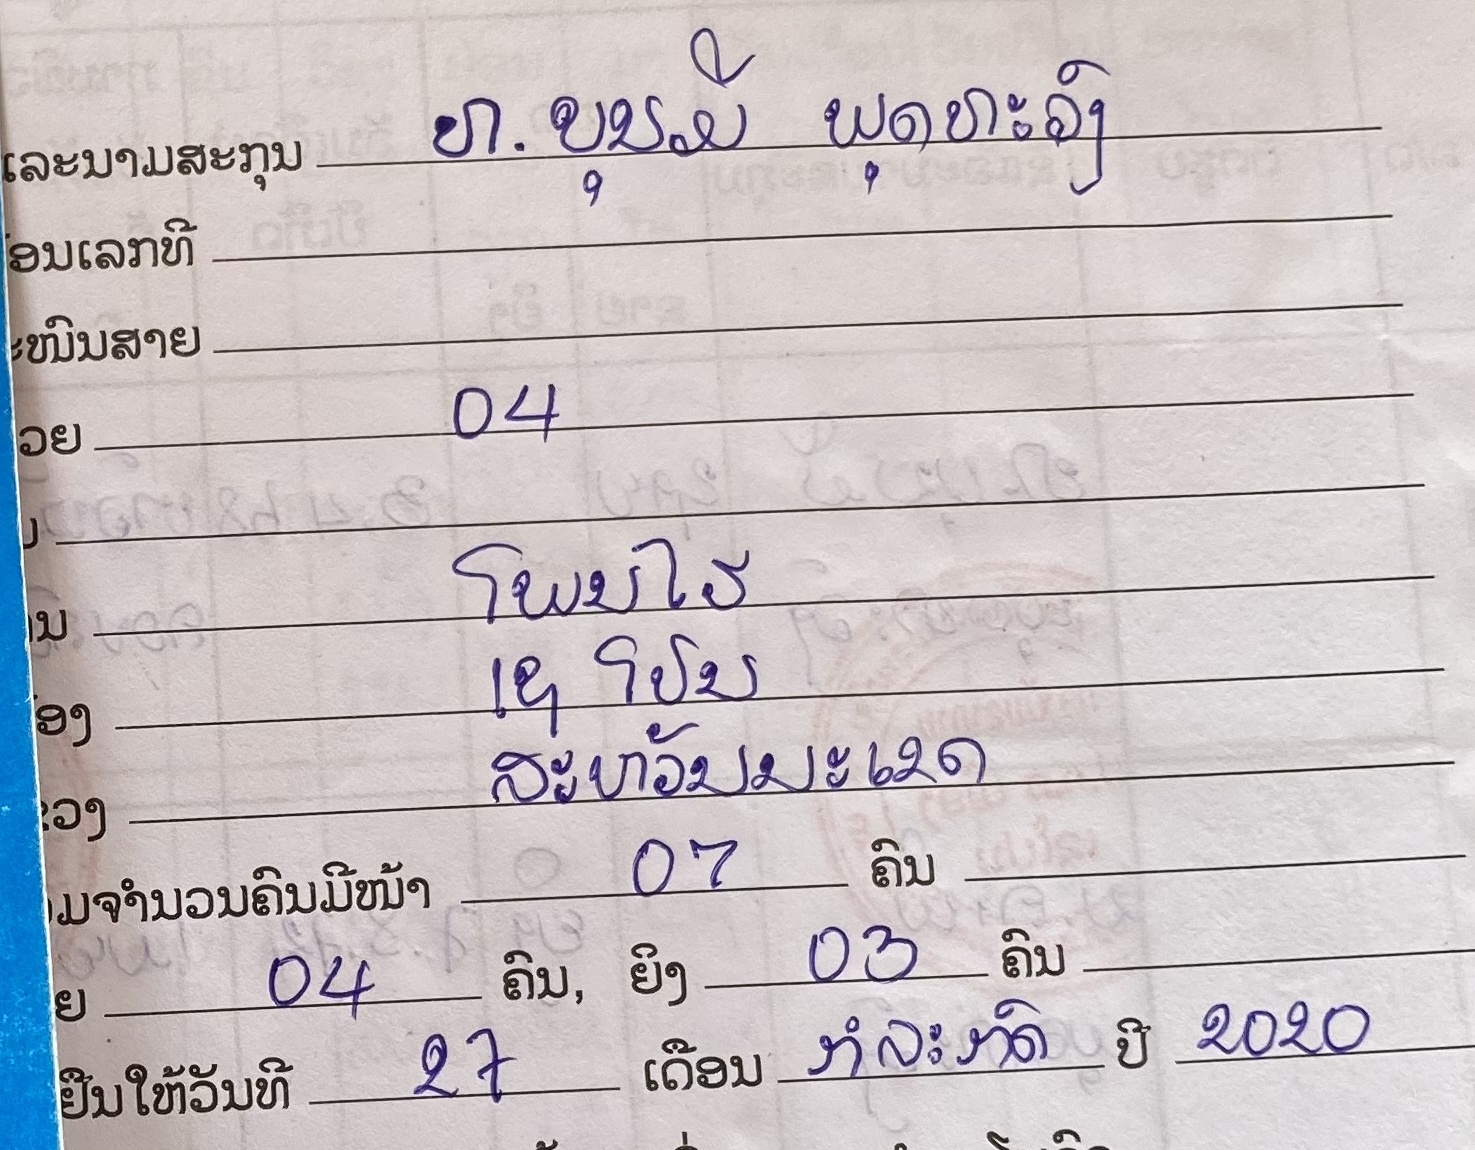 ແລະນາມສະກຸນ ທ. ບຸນມີ ພຸດທະວົງ
ອນເລກທີ
ະໜົນສາຍ
ວຍ 04
ໂພນໄຮ
ອງ ເຊໂປນ
ວງ ສະຫວັນນະເຂດ
ມຈຳນວນຄົນມີໜ້າ 07 ຄົນ
ຍ 04 ຄົນ, ຍິງ 03 ຄົນ
ຢືນໃຫ້ວັນທີ 27 ເດືອນ ກໍລະກົດ ປີ 2020